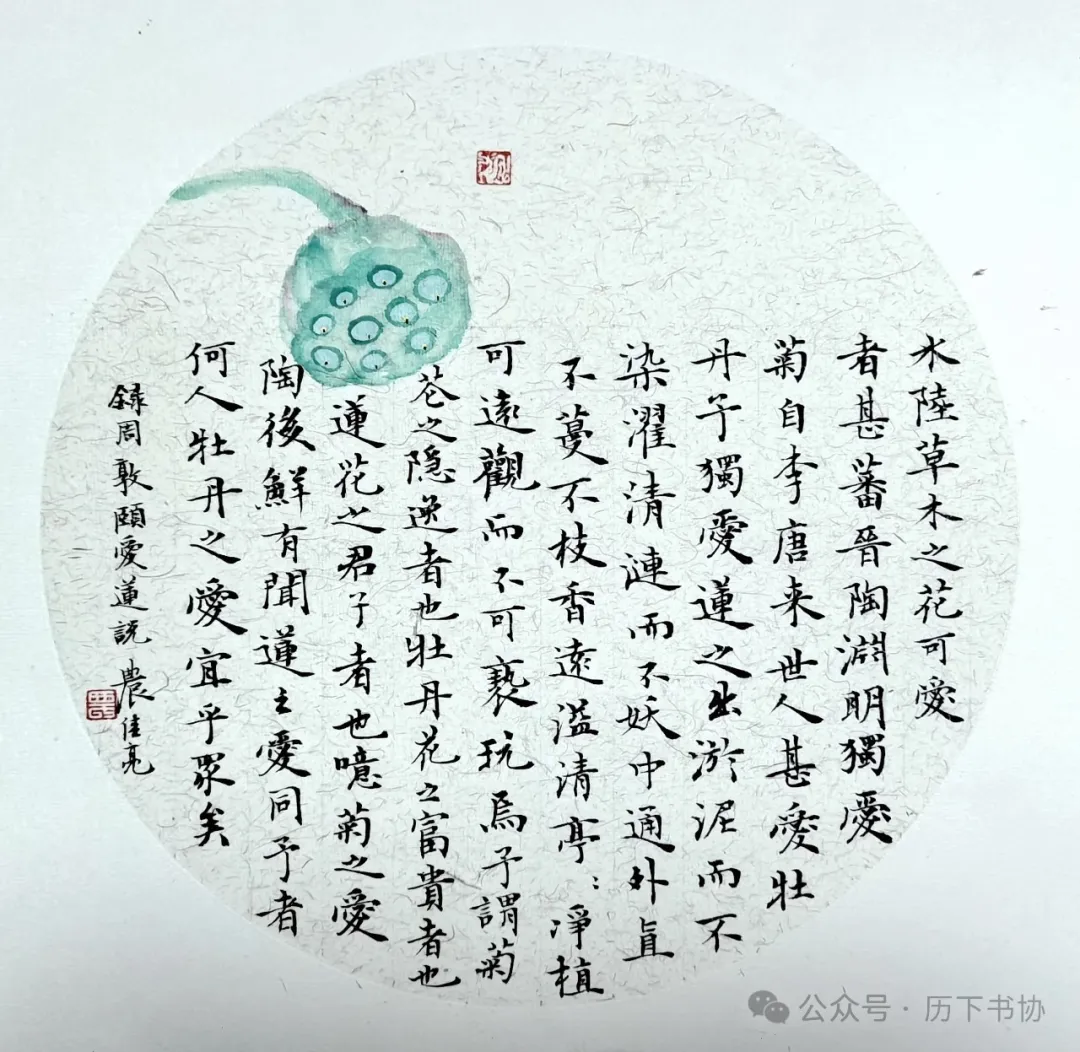 水陸草木之花可愛
者甚蕃晉陶淵明獨愛
菊自李唐来世人甚愛牡
丹予獨愛蓮之出淤泥而不
染濯清漣而不妖中通外直
不蔓不枝香遠溢清亭〻淨植
可遠觀而不可褻玩焉予謂菊
花之隐逸者也牡丹花之富貴者也
蓮花之君子者也噫菊之愛
陶後鮮有聞蓮之愛同予者
何人牡丹之愛宜乎眾矣
錄周敦頤愛蓮説 農佳亮
公众号 · 历下书协